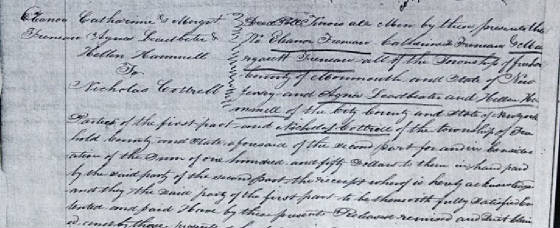 Eleanor Catharine & Margt
Freman Agnes Leadbeter &
Hellen Hammell
To
Nicholas Cottrell
Know all Men by these presents that
We Eleanor Freman Catharine Freman & Mar
garett Freman all of the Township of Free
County of Monmouth and State of New
Jersey and Agnes Leadbeter and Hellen Ha
mmell of the City County and State of Newyork
Parties of the first part and Nicholas Cottrell of the township of Free
hold County and State aforesaid of the second part for and in Consider
ation of the Sum of one hundred and fifty Dollars to them in hand paid
by the said party of the second part the receipt whereof is hereby acknowledged
and they the said party of the first part to be therewith fully Satisfied con
tented and paid Have by these presents Released remised and
by those presents